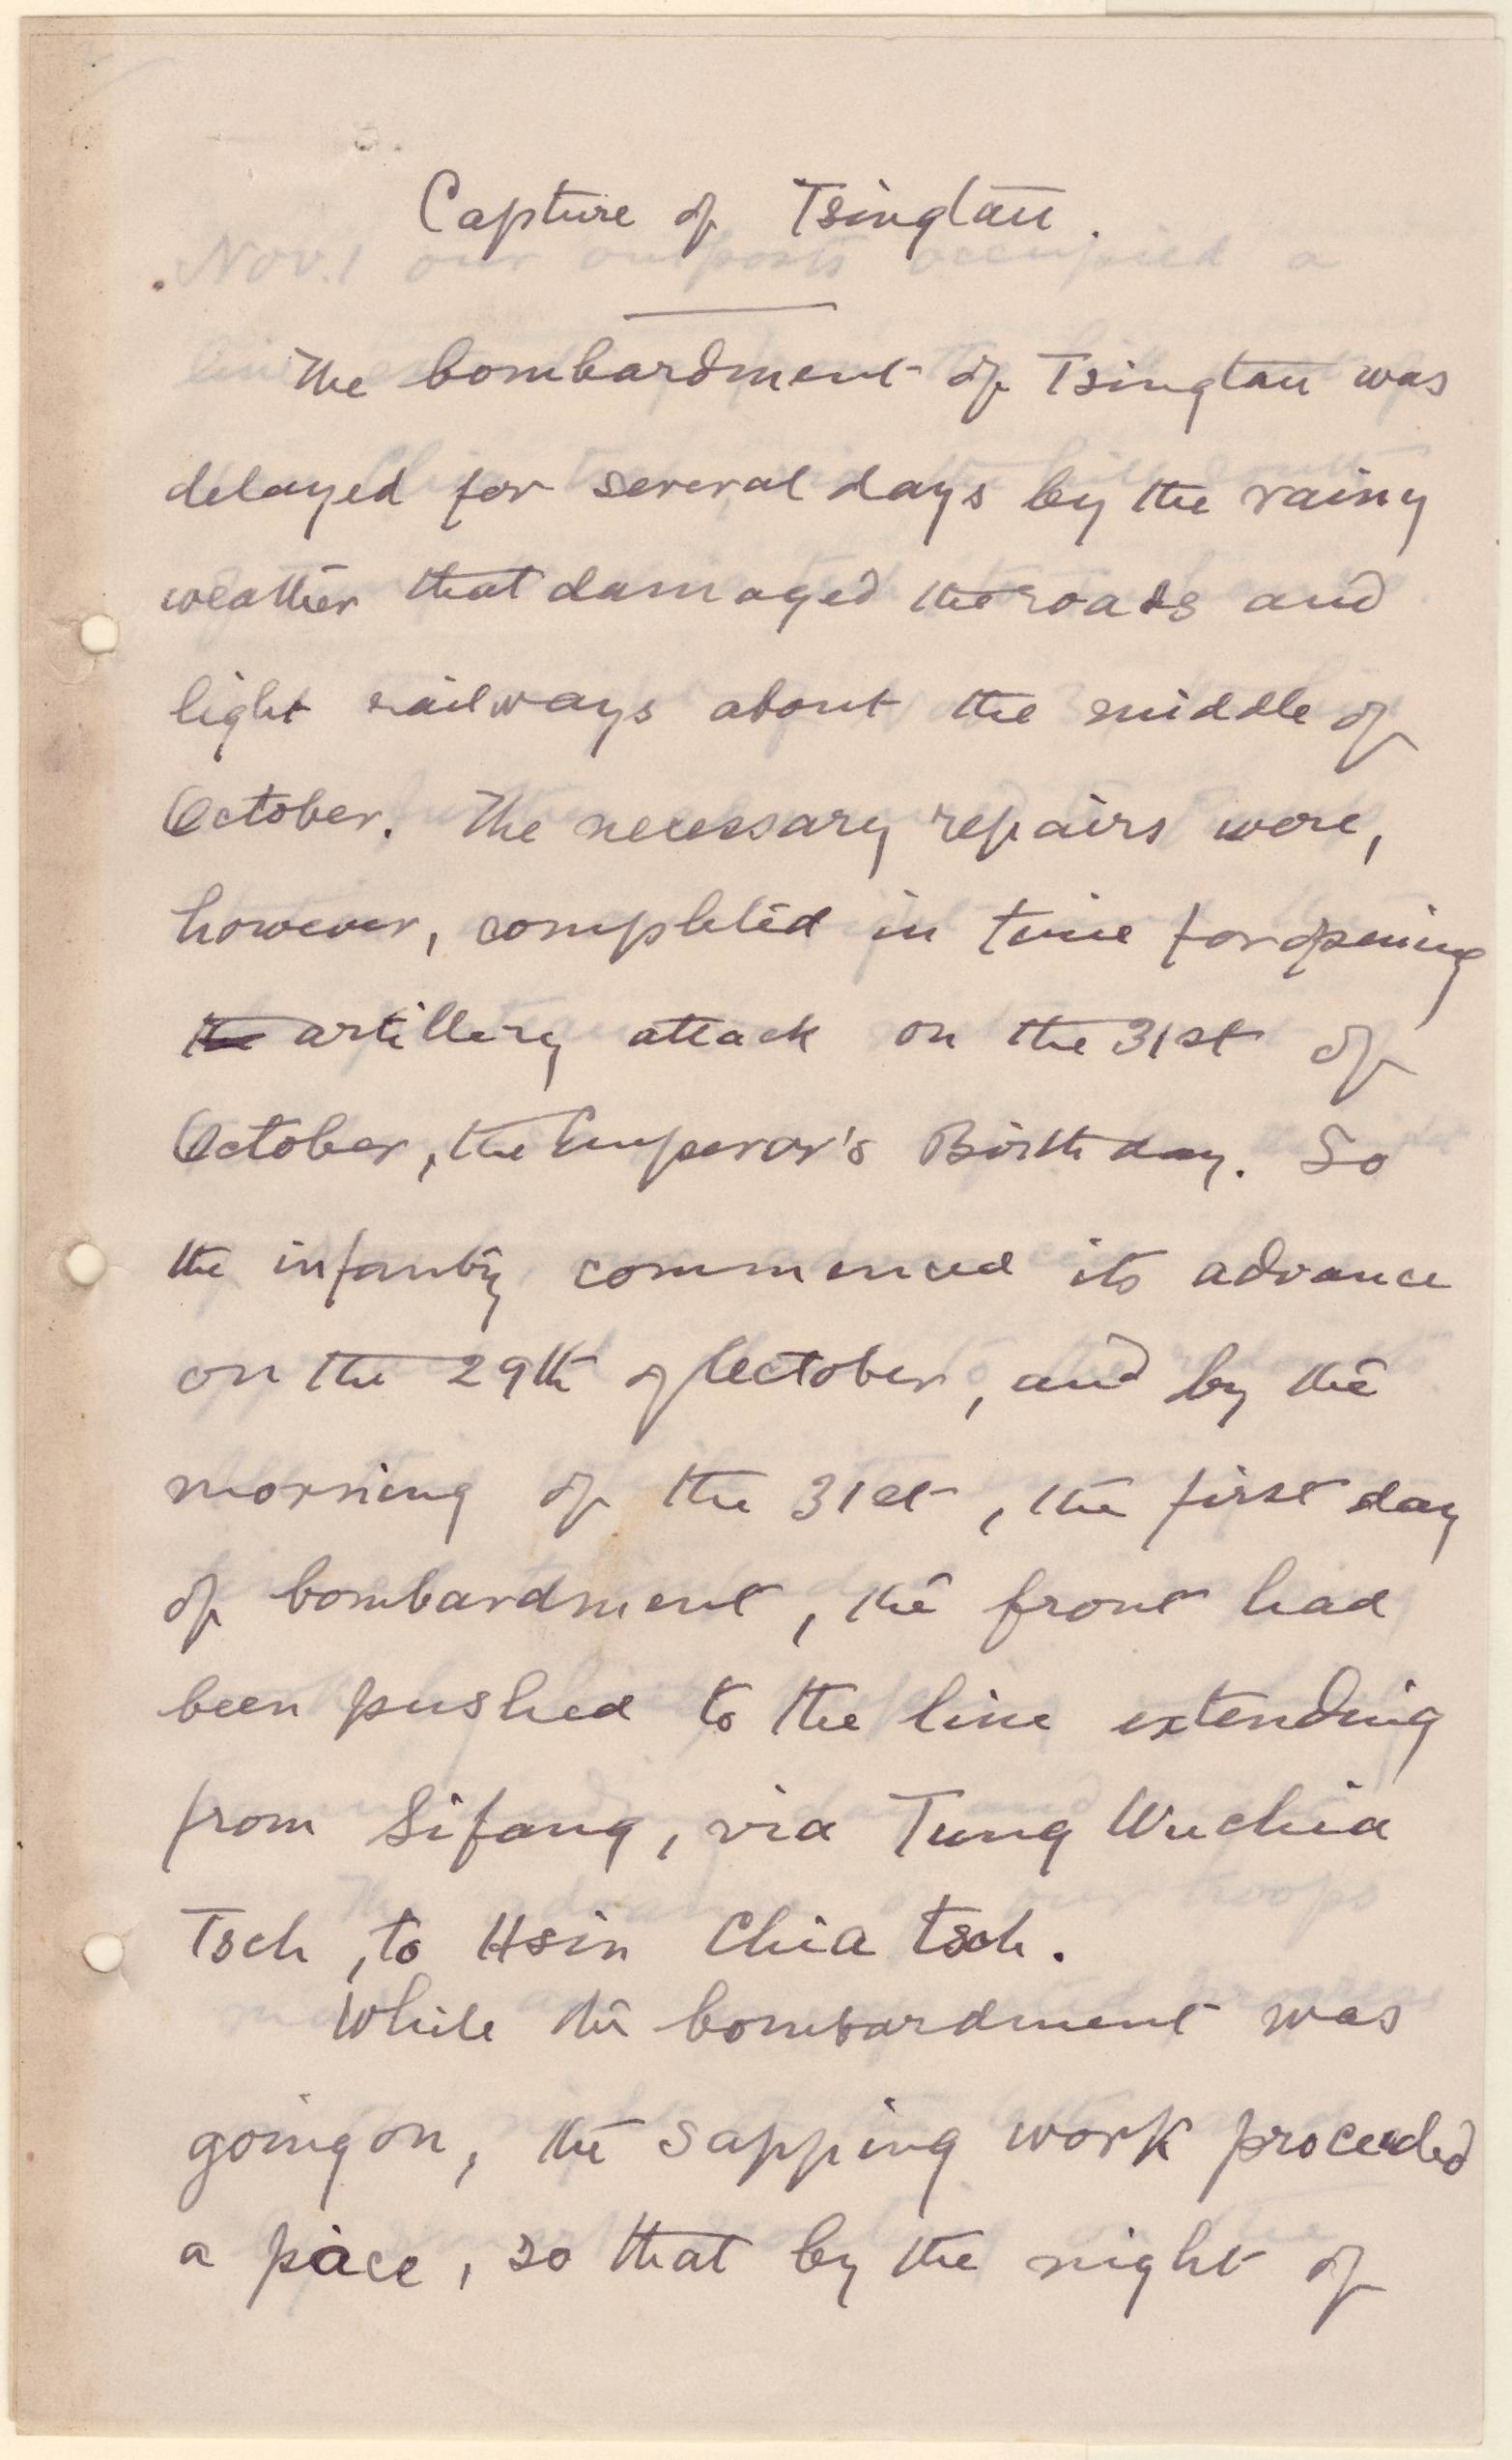 Capture of Tsingtau.
The bombardment of Tsingtau was
delayed for several days by the rainy
weather that damaged the roads and
light railways about the middle of
October. The necessary repairs were,
however, completed in time for opening
the artillery attack on the 31st of
October, the Emperor's Birthday. So
the infantry commenced its advance
on the 29th of October, and by the
morning of the 31st, the first day
of bombardment, the front had
been pushed to the line extending
from Sifang, via Tung Wuchia
Tsch, to Hsin Chia Tsch.
While the bombardment was
going on, the sapping work proceeded
a pace, so that by the night of